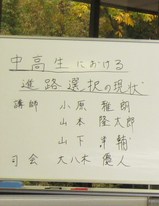 中高生における
進路選択の現状
講師 小原 雅朗
山本 隆太郎
山下 洋輔
司会 大八木 優人